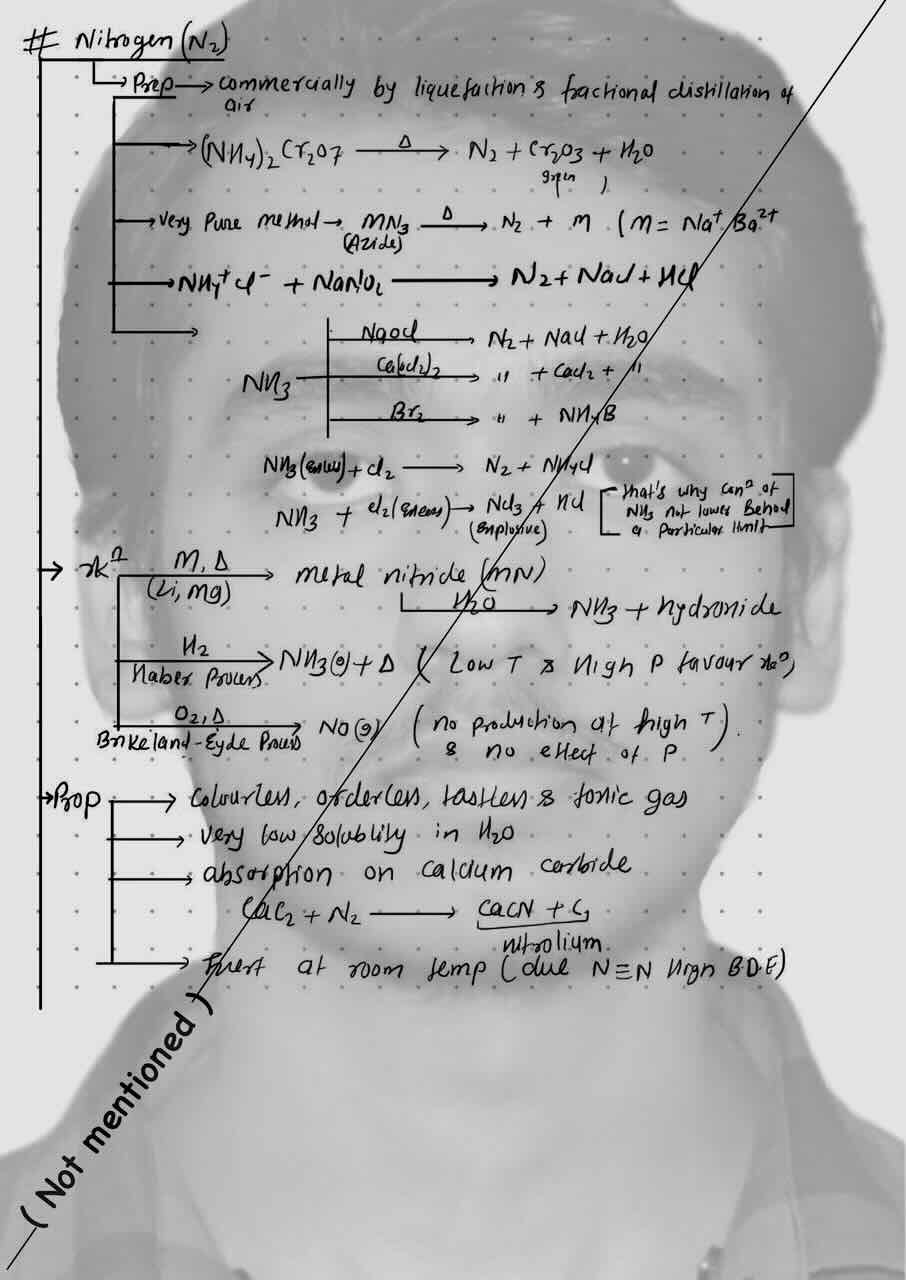 # Nitrogen (N2)
→ Prep → commercially by liquefaction & fractional distillation of
air
→ (NH4)2 Cr2O7 —Δ→ N2 + Cr2O3 + H2O
green
→ very Pure method → MN3 —Δ→ N2 + M (M = Na+ Ba2+
(Azide)
→ NH4+ Cl- + NaNO2 → N2 + NaCl + HCl
NaOCl → N2 + NaCl + H2O
NH3 Ca(OCl2)2 → " + CaCl2 + "
Br2 → " + NH4B
NH3 (excess) + Cl2 → N2 + NH4Cl
NH3 + Cl2 (excess) → NCl3 + HCl [that's why conc of
(Explosive) NH3 not lower Behod
a Particular limit]
→ rxn M, Δ → metal nitride (MN)
(Li, Mg) H2O → NH3 + hydroxide
H2 → NH3(g) + Δ ( Low T & High P favour rxn)
Haber Process
O2, Δ → NO(g) ( no production at high T ).
Brikeland-Eyde Process & no effect of P
→ Prop → colourless, orderless, tastless & tonic gas
→ very low solublity in H2O
→ absorption on calcium carbide
CaC2 + N2 → CaCN + C,
nitrolium
→ Inert at room temp (due N≡N High B.D.E)
( Not mentioned )